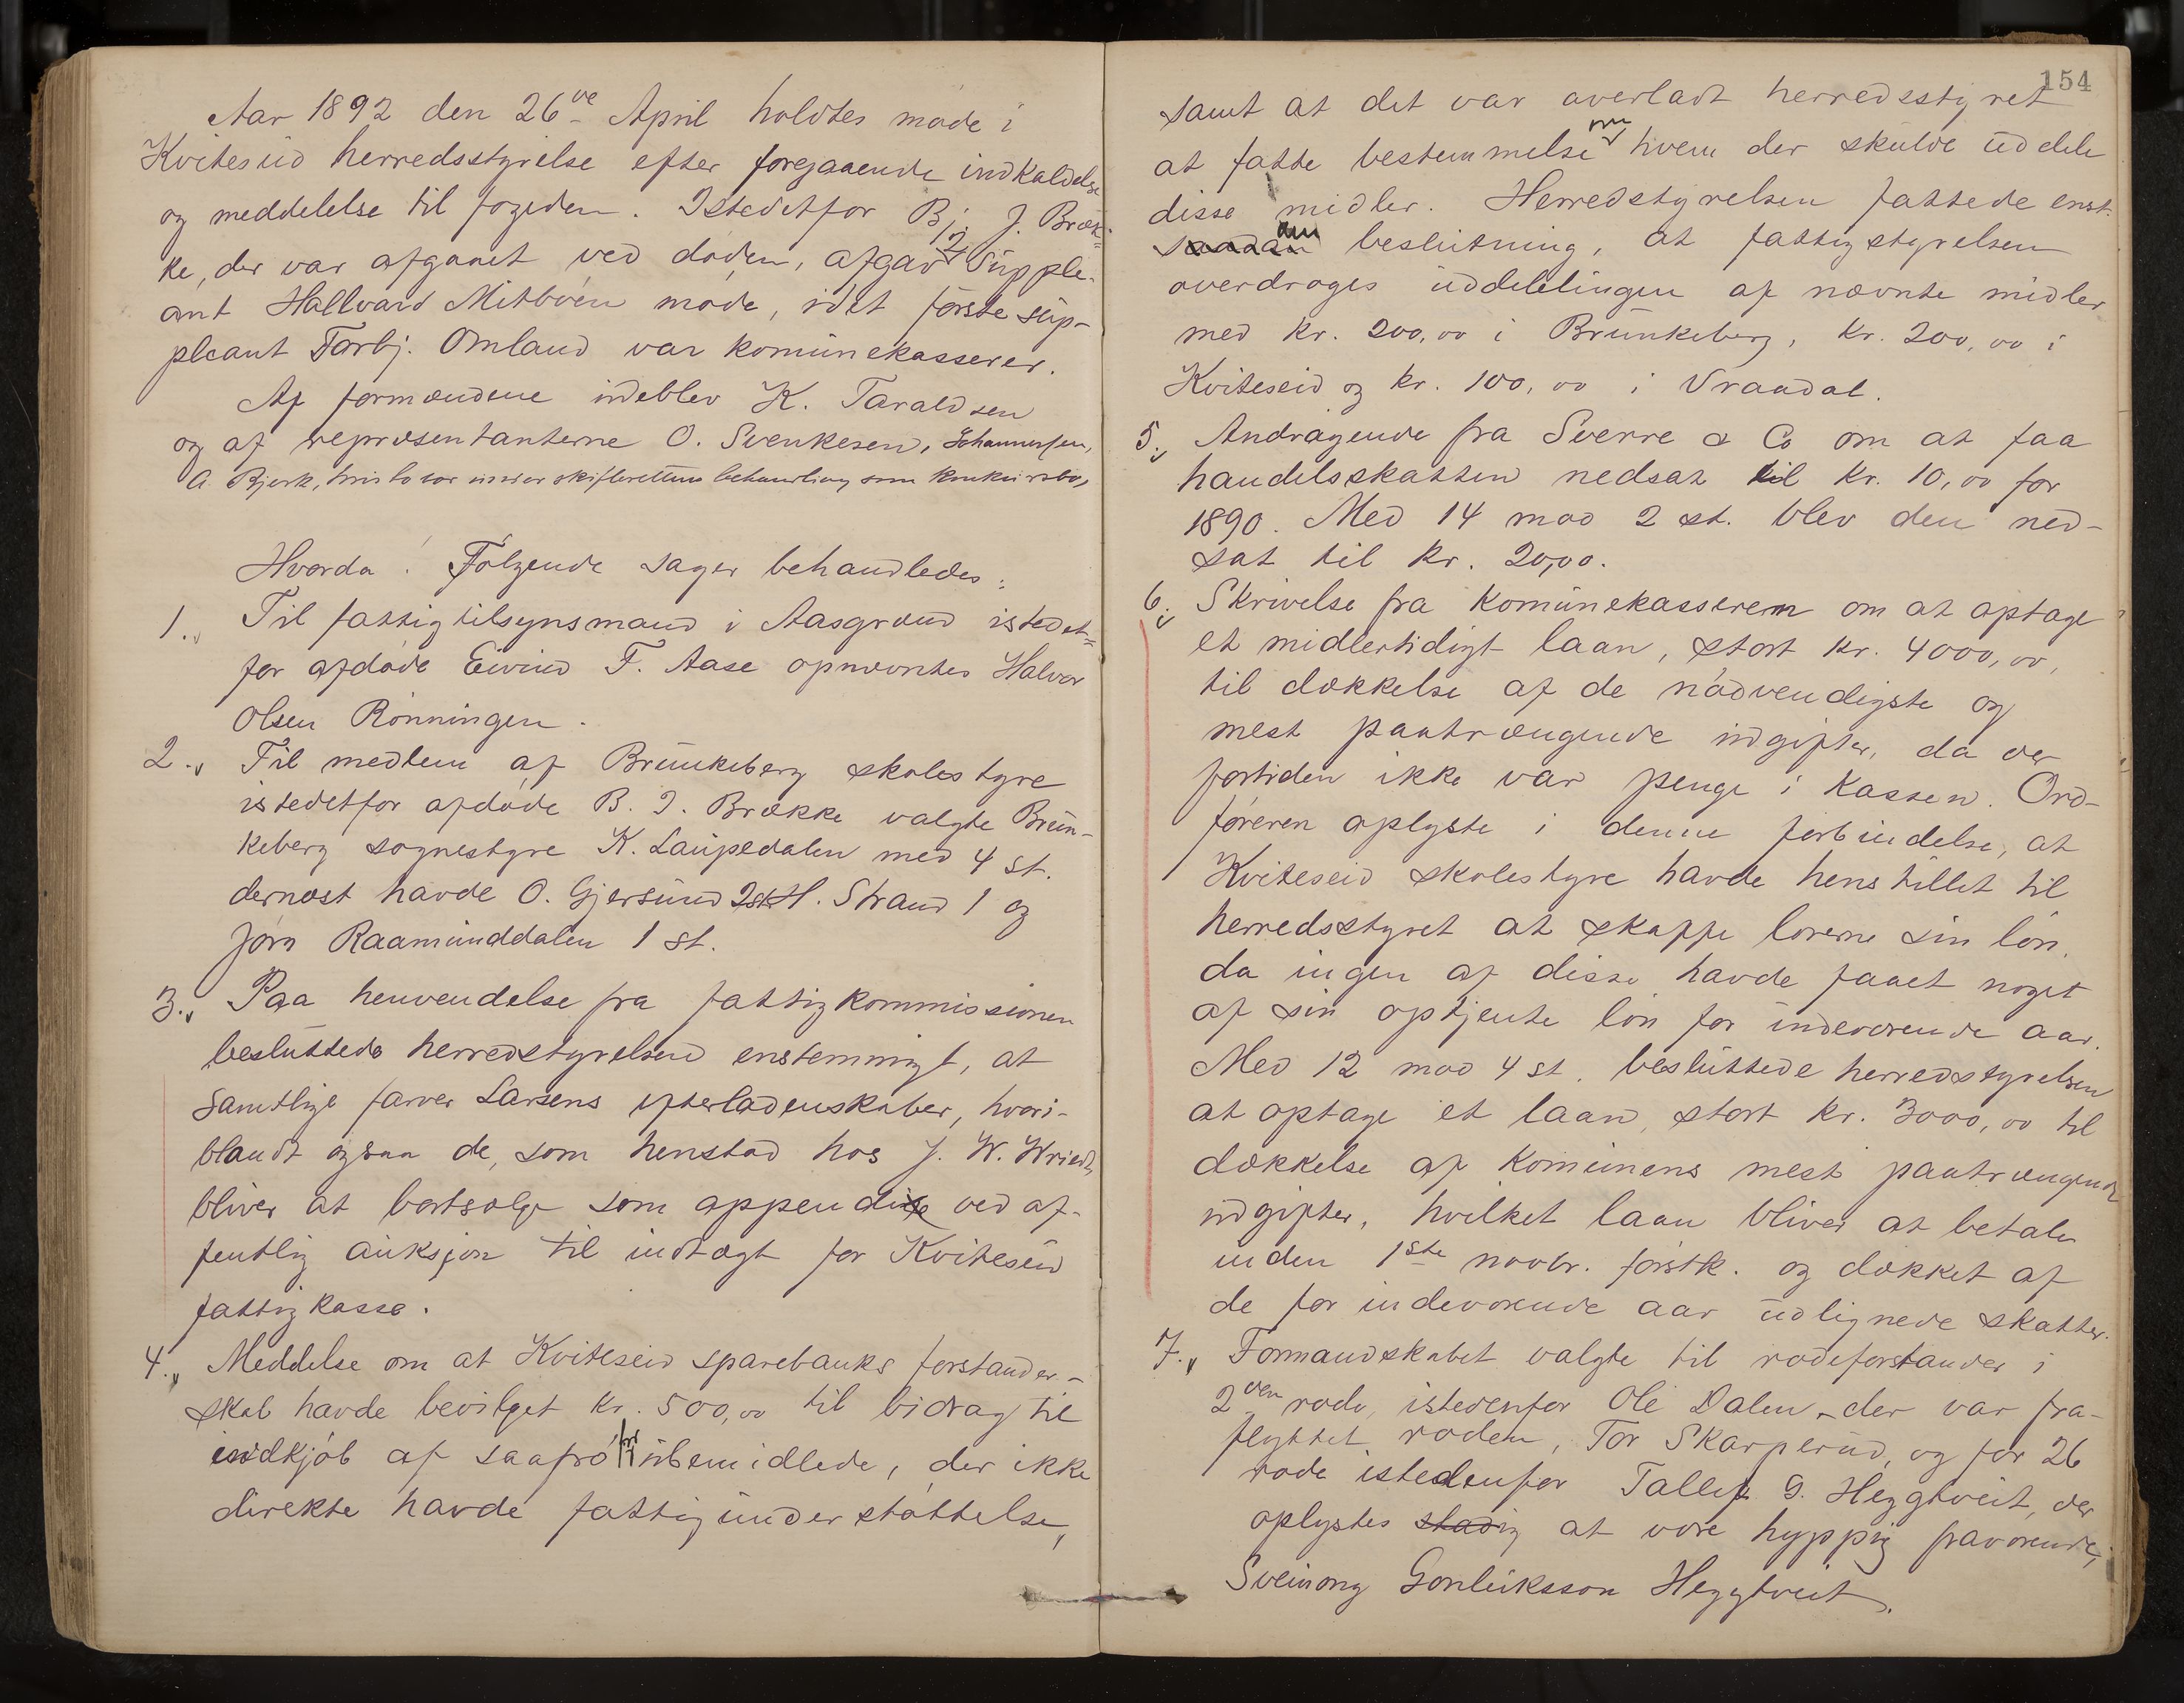 Aar 1892 den 26de April holdtes møde i
Kviteseid herredsstyrelse efter foregaaende indkaldelse
og meddelelse til fogeden. Istedetfor Bj. J. Bræk=
ke, der var afgaaet ved døden, afgav 2 supple-
ant Hallvard Mitbøen møde, idet første sup-
pleant Tarbj. Omland var komunekasserer.
Af formændene udeblev K. Taraldsen
og af repræsentanterne O. Svenkesen, Johannesen,
A. Bjerk, hvis bo var under skifterettens behandling som konkursbo,
Hvorda! Følgende sager behandledes:
1. Til fattigtilsynsmand i Aasgrænd istedet=
for afdøde Eivind T. Aase opnævntes Halvor
Olsen Rønningen.
2. Til medlem af Brunkeberg skolestyre
istedetfor afdøde B. J. Brække valgte Brun-
keberg sognestyre K. Laupedalen med 4 st.
dernæst havde O. Gjersund 2 st H. Strand 1 og
Jørn Raamunddalen 1 st.
3. Paa henvendelse fra fattigkommissionen
besluttede herredstyrelsen enstemmigt, at
samtlige farver Larsens efterladenskaber, hvori-
blandt ogsaa de, som henstod hos J. W. Wriedt,
bliver at bortsælge som appendix ved of-
fentlig auksjon til indtægt for Kviteseid
fattigkasse.
4. Meddelse om at Kviteseid sparebanks forstander-
skab havde bevilget kr. 500,00 til bidrag til
indkjøb af saafrø for ubemidlede, der ikke
direkte havde fattigunderstøttelse,
154
samt at det var overladt herredsstyret
at fatte bestemmelse om hvem der skulde uddele
disse midler. Herredstyrelsen fattede enst.
saadan den beslutning, at fattigstyrelsen
overdroges uddelelingen af nævnte midler
med kr. 200,00 i Brunkeberg, kr. 200,00 i
Kviteseid og kr. 100,00 i Vraadal.
5. Andragende fra Sverre & Co om at faa
handelsskatten nedsat til kr. 10,00 for
1890. Med 14 mod 2 st. blev den ned-
sat til kr. 20,00.
6. Skrivelse fra komunekassereren om at optage
et midlertidigt laan, stort kr. 4000,00,
til dækkelse af de nødvendigste og
mest paatrængende udgifter, da der
fortiden ikke var penge i kassen. Ord-
føreren oplyste i denne forbindelse, at
Kviteseid skolestyre havde henstillet til
herredsstyret at skaffe lærerne sin løn,
da ingen af disse havde faaet noget
af sin optjente løn for indeværende aar.
Med 12 mod 4 st. besluttede herredstyrelsen
at optage et laan, stort kr. 3000,00 til
dækkelse af komunens mest paatrængende
udgifter, hvilket laan bliver at betale
inden 1ste novbr. førstk. og dækket af
de for indeværende aar udlignede skatter.
7. Formandskabet valgte til rodeforstander i
2den rode, istedenfor Ole Dalen, der var fra-
flyttet roden, Tor Skarperud, og for 26
rode istedenfor Tallef G. Heggtveit, der
oplystes stadig at være hyppig fraværende,
Sveinong Gonleiksson Heggtveit.